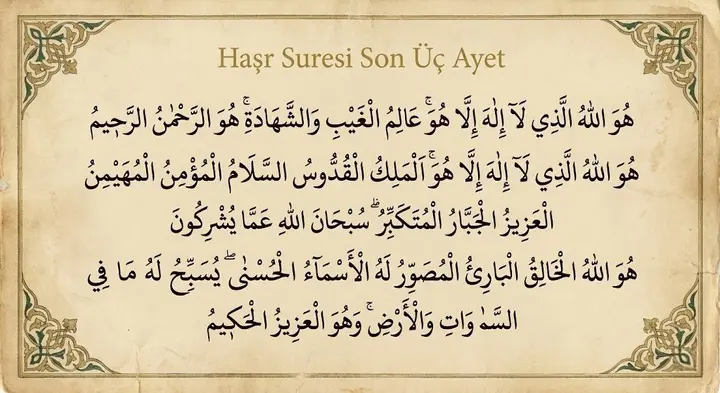 Haşr Suresi Son Üç Ayet
هُوَ اللهُ الَّذِي لَآ إِلٰهَ إِلَّا هُوَ ۚ عَالِمُ الْغَيْبِ وَالشَّهَادَةِ ۚ هُوَ الرَّحْمٰنُ الرَّحِيمُ
هُوَ اللهُ الَّذِي لَآ إِلٰهَ إِلَّا هُوَ ۚ اَلْمَلِكُ الْقُدُّوسُ السَّلَامُ الْمُؤْمِنُ الْمُهَيْمِنُ
الْعَزِيزُ الْجَبَّارُ الْمُتَكَبِّرُ ۗ سُبْحَانَ اللهِ عَمَّا يُشْرِكُونَ
هُوَ اللهُ الْخَالِقُ الْبَارِئُ الْمُصَوِّرُ لَهُ الْأَسْمَآءُ الْحُسْنٰى ۖ يُسَبِّحُ لَهُ مَا فِي
السَّمٰوَاتِ وَالْأَرْضِ ۚ وَهُوَ الْعَزِيزُ الْحَكِيمُ